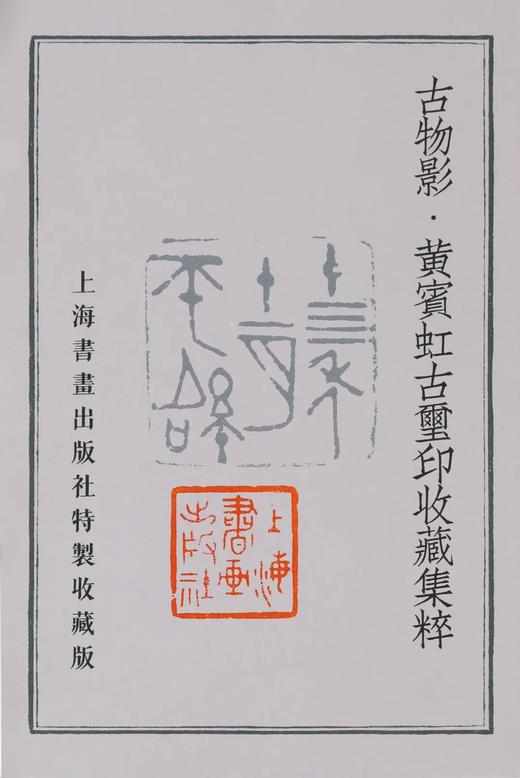 古物影·黃賓虹古璽印收藏集粹
上海
書畫
出版社
上海書畫出版社特製收藏版